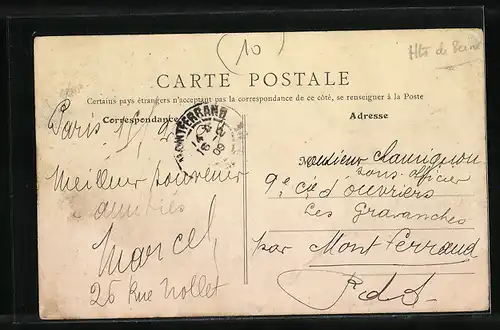 (10)
Hts de Seine
CARTE POSTALE
Certains pays étrangers n'acceptant pas la correspondance de ce côté, se renseigner à la Poste
Correspondance
Adresse
MONTFERRAND
Paris
Meilleur souvenir
amitiés
Marcel
26 Rue Nollet
Monsieur
sous-officier
9e Cie d'ouvriers
Les Gravanches
par Mont Ferrand
P d D